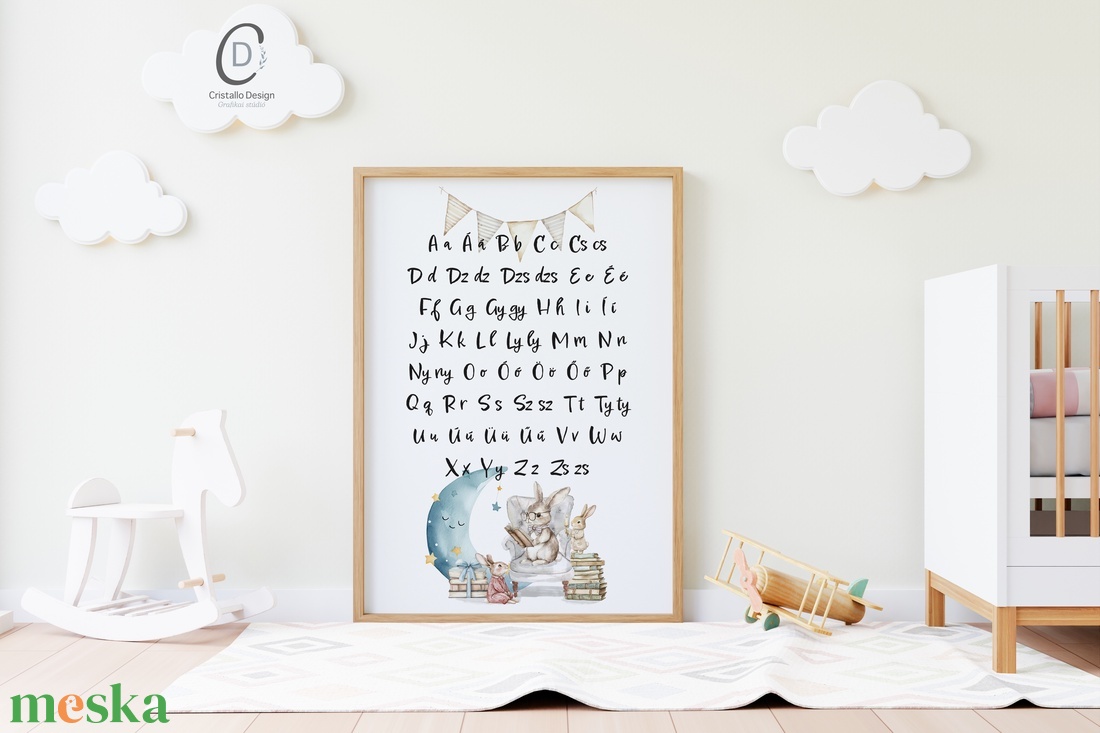 CD
Cristallo Design
Grafikai stúdió
A a Á á B b C c Cs cs
D d Dz dz Dzs dzs E e É é
F f G g Gy gy H h I i Í í
J j K k L l Ly ly M m N n
Ny ny O o Ó ó Ö ö Ő ő P p
Q q R r S s Sz sz T t Ty ty
U u Ú ú Ü ü Ű ű V v W w
X x Y y Z z Zs zs
meska